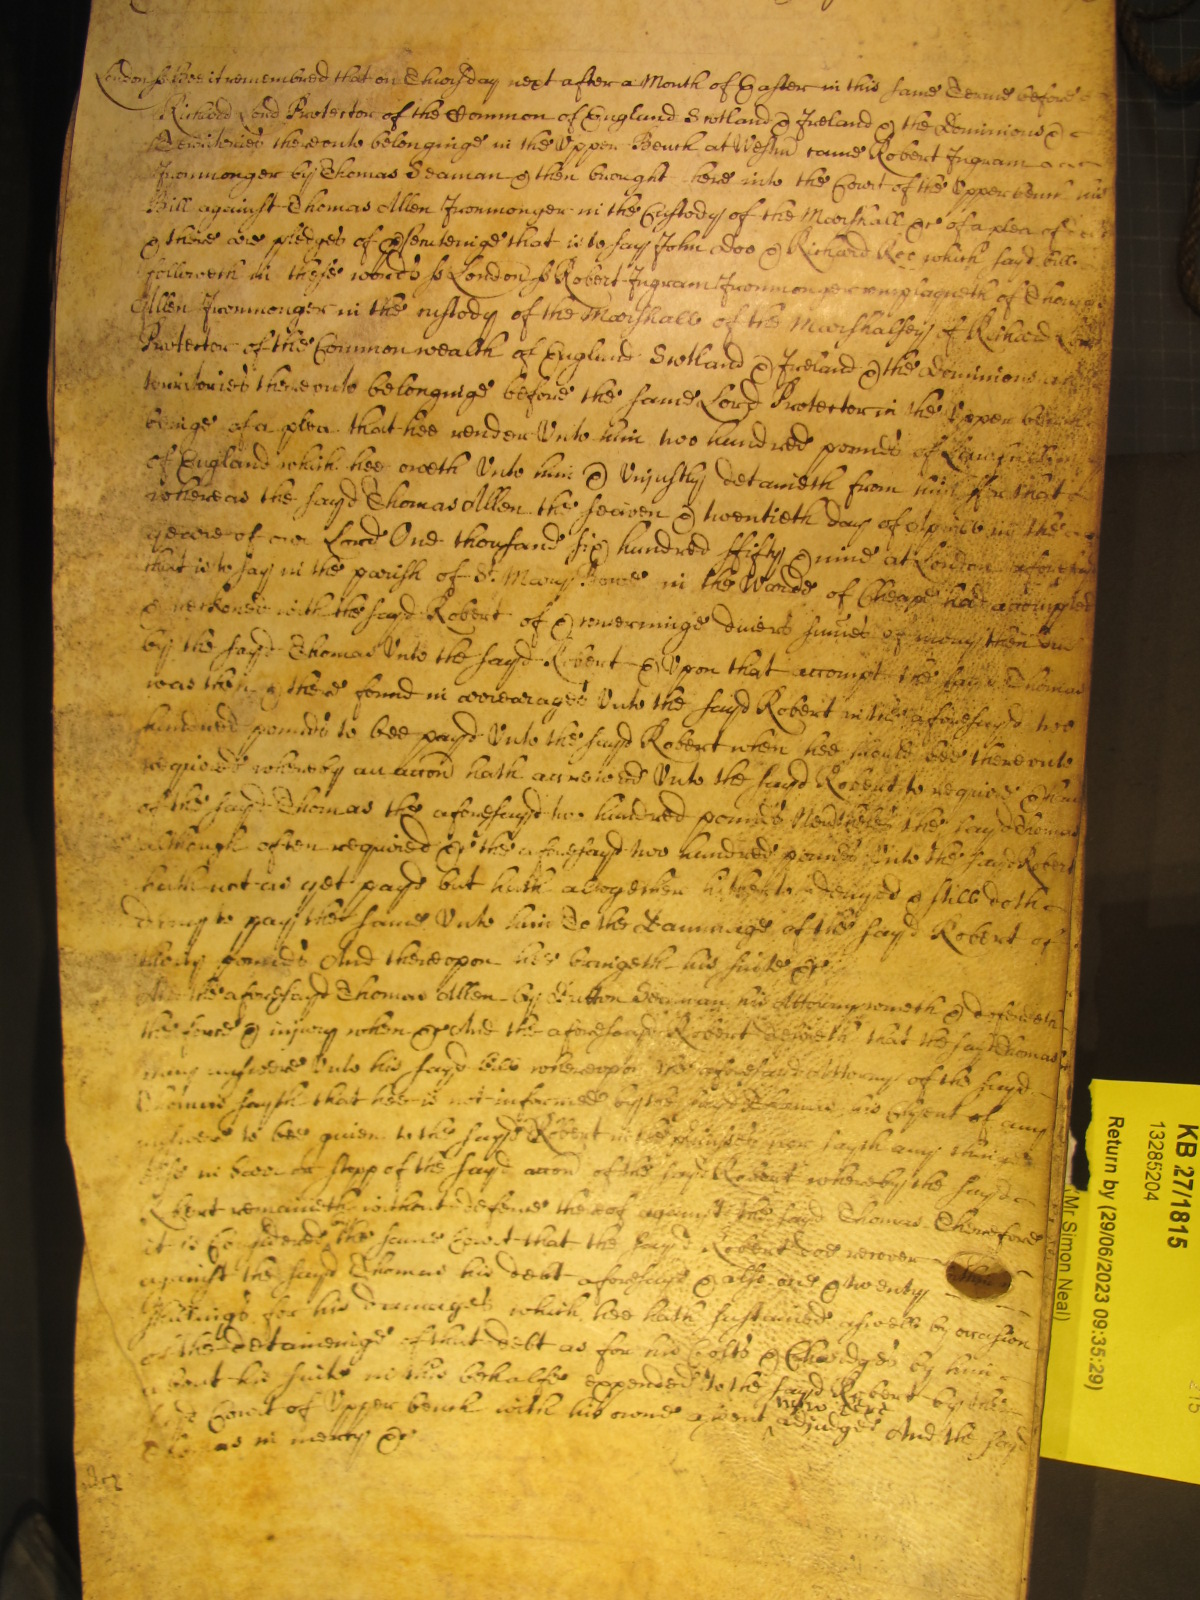 London ss Bee it remembred that on Thursday next after a Month of Easter in this same Terme before
Richard Lord Protector of the Common of England Scotland & Ireland & the Dominions &
Territories thereunto belonginge in the Upper Bench at Westmr came Robert Ingram
Ironmonger by Thomas Seaman & then brought here into the Court of the Upper bench his
Bill against Thomas Allen Ironmonger in the Custody of the Marshall &c of a plea of
& there are pledges of prosecutinge that is to say John Doe & Richard Roe which sayd bill
followeth in these words ss London ss Robert Ingram Ironmonger complayneth of Thomas
Allen Ironmonger in the custody of the Marshall of the Marshalsey of Richard Lord
Protector of the Common wealth of England Scotland & Ireland & the Dominions and
territories thereunto belonginge before the same Lord Protector in the Upper bench
beinge of a plea that hee render Unto him two hundred pounds of
of England which hee oweth Unto him & Unjustly detaineth from him For that
whereas the sayd Thomas Allen the seaven & twentieth day of Aprill in the
yeare of our Lord One thousand six hundred fifty & nine at London aforesaid
that is to say in the parish of St Mary Bowe in the Warde of Cheape had accompted
& reckoned with the sayd Robert of & concerninge divers sumes of mony then due
by the sayd Thomas Unto the sayd Robert & Upon that accompt the sayd Thomas
was then & there found in arrearages Unto the sayd Robert in the aforesayd two
hundred pounds to bee payd Unto the sayd Robert when hee should bee thereunto
required whereby an accon hath accrewed Unto the sayd Robert to require & have
of the sayd Thomas the aforesayd two hundred pounds Neverthelesse the sayd Thomas
although often required &c the aforesayd two hundred pounds Unto the sayd Robert
hath not as yet payd but hath altogether hitherto denyed & still doth
deny to pay the same Unto him To the Dammage of the sayd Robert of
pounds And thereupon hee bringeth his suite &c
And the aforesayd Thomas Allen by Dutton Seaman his Attorny cometh & defendeth
the force & injury when &c And the aforesayd Robert desireth that the sayd Thomas
may answere Unto his sayd bill whereupon the aforesayd Attorny of the sayd
Thomas sayth that hee is not informed by the sayd Thomas his Clyent of any
answere to bee given to the sayd Robert in the premisses nor sayth any thinge
else in barr or stopp of the sayd accon of the sayd Robert whereby the sayd
Robert remaineth without defence thereof against the sayd Thomas Therefore
it is Considered the same Court that the sayd Robert doe recover
against the sayd Thomas his debt aforesayd & also one & twenty
shillings for his damages which hee hath sustained aswell by occasion
of the detaininge of that debt as for his Costs & Chardges by him
about his suite in this behalfe expended to the sayd Robert by the
sayd Court of Upper bench with his owne assent now here adjudged And the sayd
Thomas in mercy &c
KB 27/1815
13285204
Return by (29/06/2023 09:35:29)
(Mr Simon Neal)